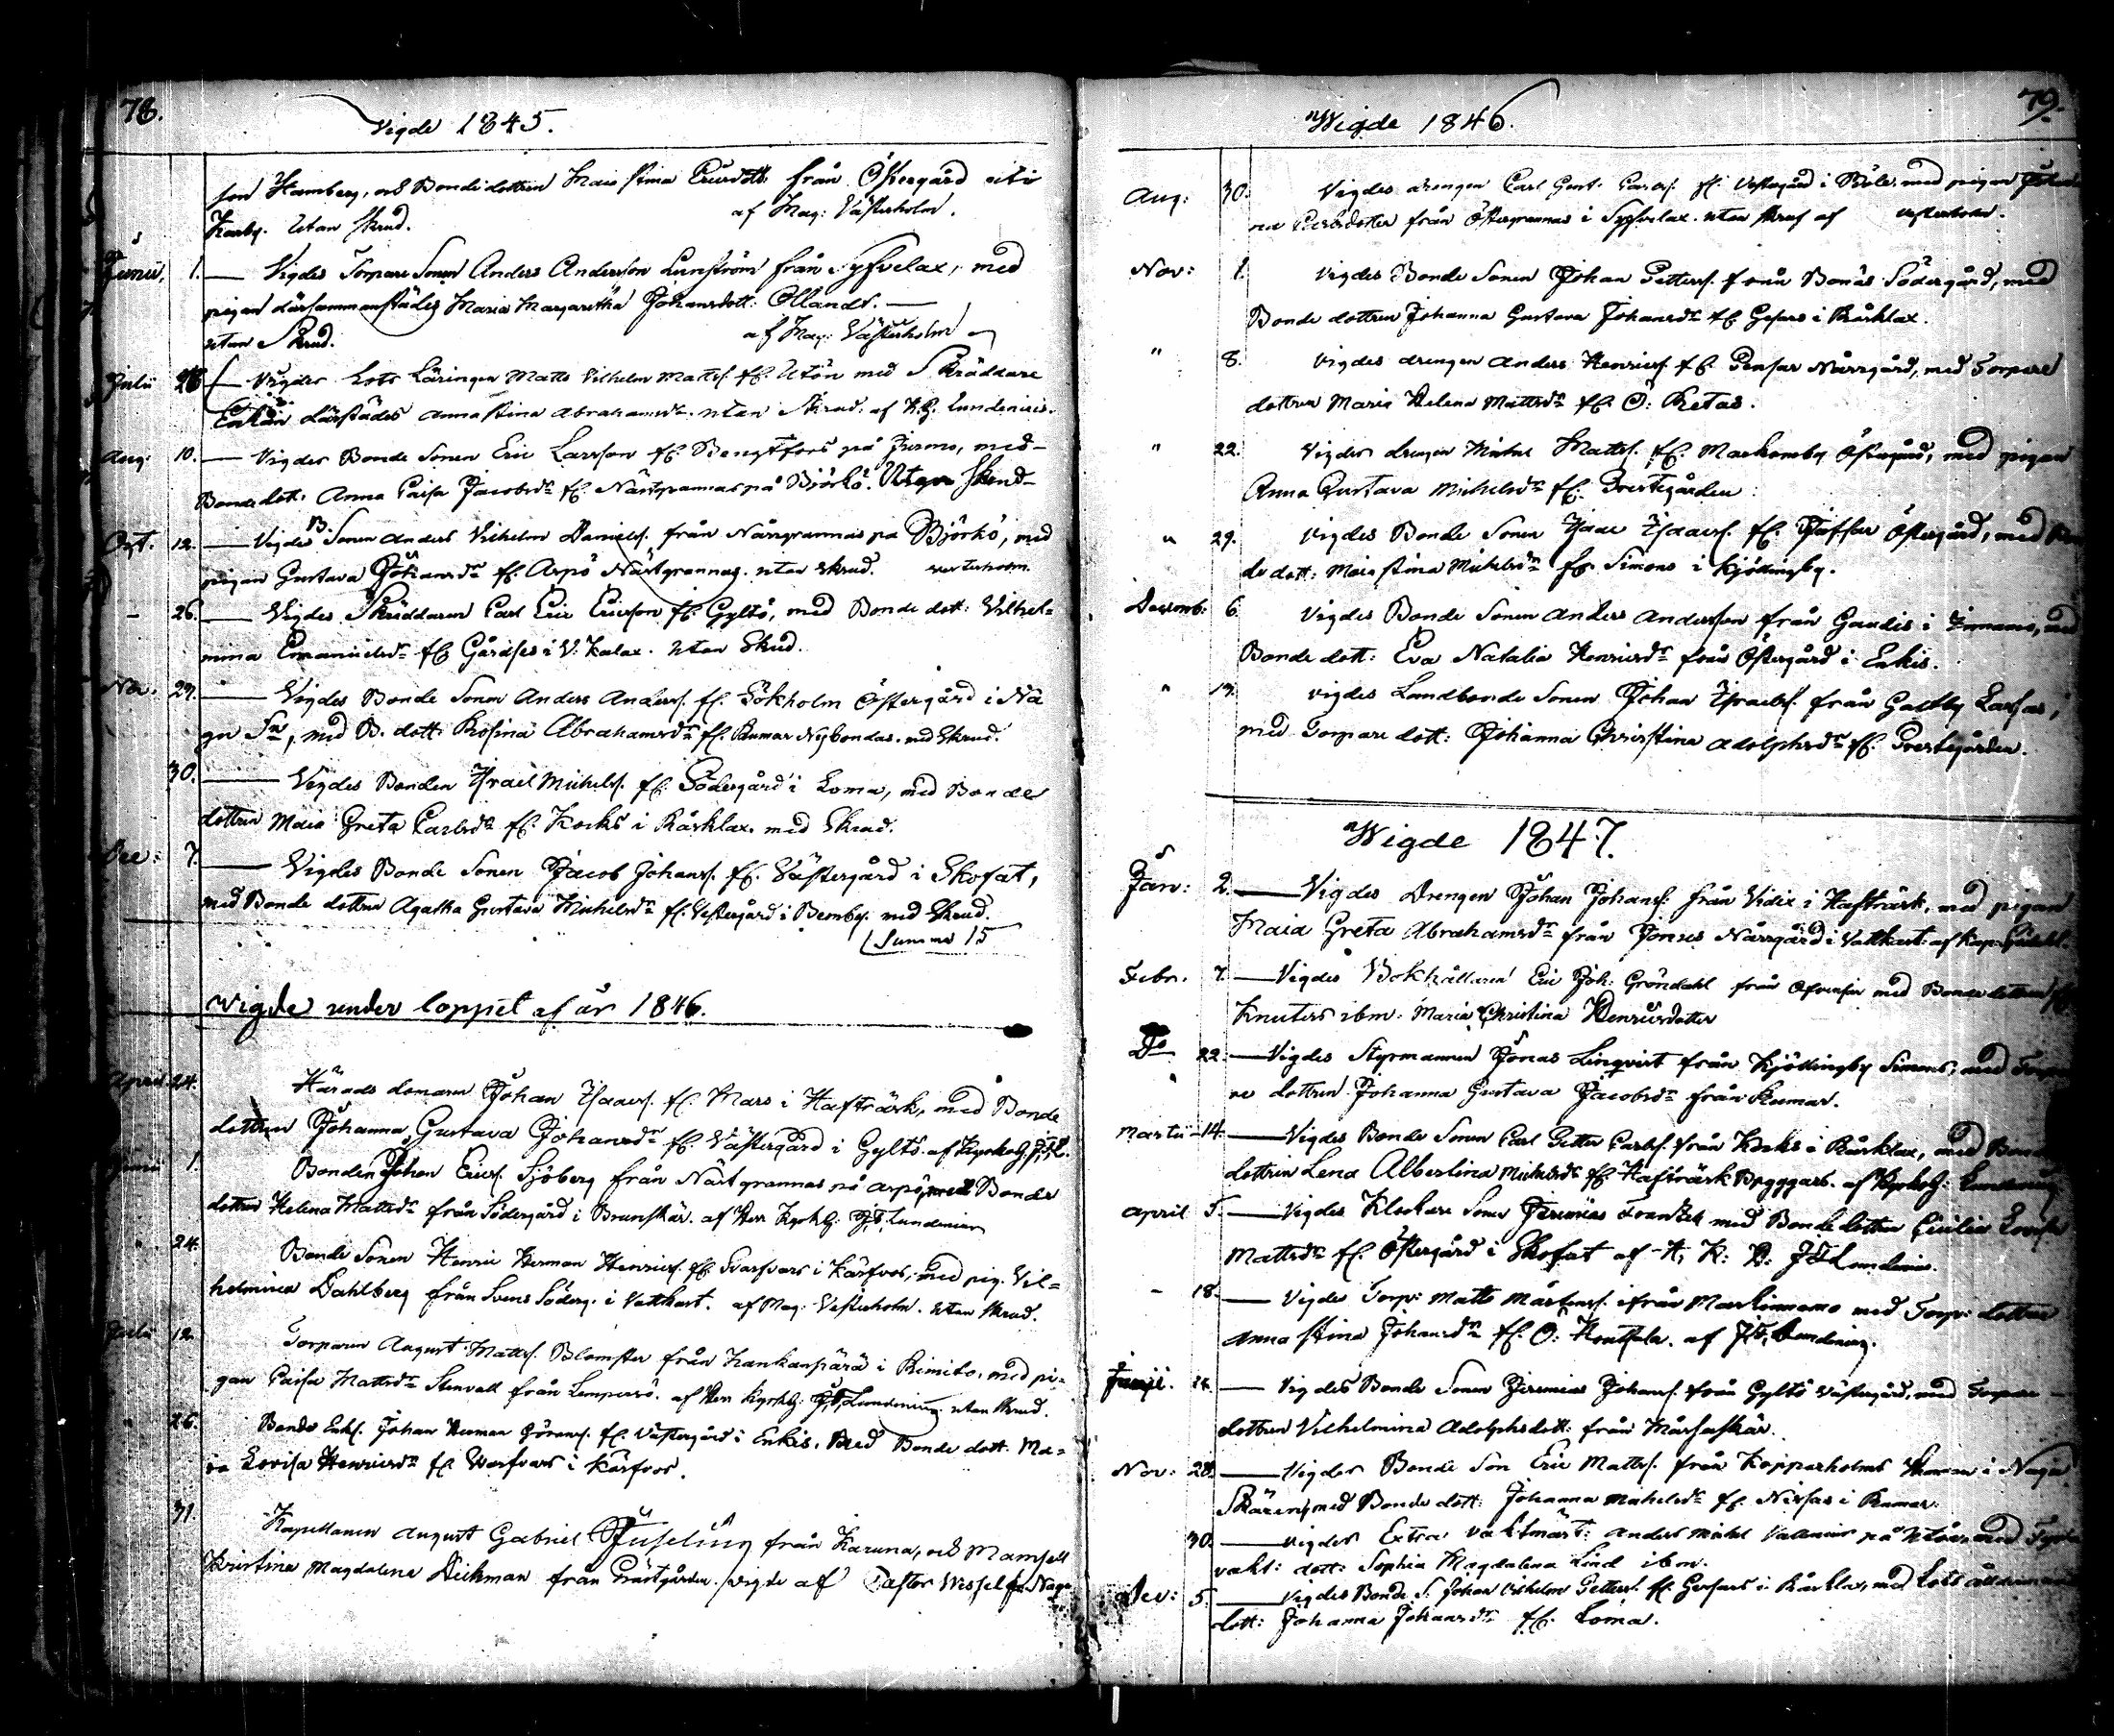 78.
Vigde 1845.
son Hamberg, och Bonde dottren Maia Stina Ericsdott: från Östergård uti
Korby. Utan skrud. af Mag: Västerholm.
Junii, 1. Vigdes Torpare Sonen Anders Andersson Lunström från Syfvelax, med
pigan därsammanstädes Maria Margaretha Johansdott: Ollandt.
utan Skrud. af Mag: Västerholm
Julii 26 Vigdes Lots Läringen Matts Vilhelm Matts. fr. Utön med Skräddare
Enkan därstädes Anna Stina Abrahamsdr. utan Skrud. af K.H. Lundenius.
Aug: 10. Vigdes Bonde Sonen Eric Larsson fr. Bengtfors på Jurmo, med
Bonde dott: Anna Caisa Jacobsdr fr. Närtgrannas på Björkö. Utan Skrud
Oct. 12. Vigdes B. Sonen Anders Vilhelm Daniels. från Nårrgrannas på Björkö, med
pigan Gustava Johansdr fr. Arpö Närtgrannas. utan skrud. Vesterholm.
26. Vigdes Skräddaren Carl Eric Ericson fr. Gyltö, med Bonde dott: Vilhel=
mina Emanuelsdr fr Gårdses i V: Kalax. utan Skrud.
Nov. 29. Vigdes Bonde Sonen Anders Anders. fr. Sökholm Östergård i Na
gu Sn, med B. dott: Rosina Abrahamsdr fr. Rumar Nybondas. med Skrud.
30. Vigdes Bonden Israel Michels. fr. Södergård i Loma, med Bonde
dottren Maia Greta Carlsdr fr. Kocks i Kårklax. med Skrud.
Dec: 7. Vigdes Bonde Sonen Jacob Johans. fr. Västergård i Skofat,
med Bonde dottren Agatha Gustava Michelsdr fr. Vestergård i Bemby. med Skrud.
Summa 15
Vigde under loppet af år 1846.
April 24. Härads domaren Johan Isacs. fr. Mars i Hafträsk, med Bonde
dottren Johanna Gustava Johansdr fr. Västergård i Gyltö. af Kyrkoh. J.T.L.
Junii 1. Bonden Johan Erics. Sjöberg från Närtgrannas på Arpö, med Bonde
dottren Helena Mattsdr från Södergård i Brunskär. af Herr Kyrkh: J.T. Lundenius
" 24. Bonde Sonen Henric Herman Henrics. fr Svarfvars i Kårfvos, med pig. Vil=
helmina Dahlberg från Svens Söderg. i Vattkast. af Mag: Vesterholm. utan skrud.
Julii 12. Torparen August Matts. Blomster från Hankanpärä i Rimito, med pi=
gan Caisa Mattsdr Stenvall från Lempersö. af Herr Kyrkh: J.T. Lundenius utan skrud.
" 26. Bonde Enkl. Johan Herman Görans. fr. Västergård i Enkis, med Bonde dott. Ma=
ia Lovisa Henricsdr fr Svarfvars i Kårfvos.
31. Kapellanen August Gabriel från Karuna, och Mamsell
Kristina Magdalena Dickman från Prästgården. vigde af Pastor Wessel fr Nagu
79.
Wigde 1846.
Aug: 30. Vigdes drengen Carl Gust. Carls. fr. Vestergård i Böle, med pigan
na Carlsdotter från Östergrannas i Syfvelax. utan skrud af Vesterholm.
Nov: 1. Vigdes Bonde Sonen Johan Petters. från Bonäs Södergård, med
Bonde dottren Johanna Gustava Johansdr fr Gesars i Kårklax.
" 8. Vigdes drengen Anders Henrics. fr. Pensar Nårrgård, med Torpare
dottren Maria Helena Mattsdr fr. Ö: Retas.
" 22. Vigdes drengen Michel Matts. fr. Markomby Östergård, med pigan
Anna Gustava Michelsdr fr. Prestegården.
" 29. Vigdes Bonde Sonen Isaac Isaacs. fr. Östergård, med Bon
de dott: Maia Stina Michelsdr fr. Simons i Kjödingby.
Decemb: 6 Vigdes Bonde Sonen Anders Andersson från Gandis i med
Bonde dott: Eva Natalia Henricsdr från Östergård i Enkis.
" 19. Vigdes Landbonde Sonen Johan Israels. från Galtby Larsas,
med Torpare dott: Johanna Christina Adolphsdr fr. Prestegården.
Wigde 1847.
Jan: 2. Vigdes Drengen Johan Johans. från Vidix i Hafträsk, med pigan
Maia Greta Abrahamsdr från Jonses Nårrgård i Vattkast. af Kap:
Febr. 7. Vigdes Bokhållaren Eric Joh: Gröndahl från med Bonde dottren fr
Knuters ibm. Maria Christina Henricsdotter
Do 22. Vigdes Styrmannen Jonas Linqvist från Kjödingby Simons, med Torpa
re dottren Johanna Gustava Jacobsdr från Rumar.
Martii 14. Vigdes Bonde Sonen Carl Petter Carls. från Kocks i Kårklax, med Bonde
dottren Lena Albertina Michelsdr fr. Hafträsk Byggars. af Kyrkoh: Lundenius
April 5. Vigdes Klockare Sonen Jeremias Frantzel med Bonde dottren Cicilia Lovisa
Mattsdr fr. Östergård i Skofat af H. K: H: J T Lundenius.
" 18. Vigdes Torp: Matts Mårtens. ifrån Marskinnamo med Torp: dottren
Anna Stina Johansdr fr. Ö: Houtskär. af J.T. Lundenius.
Junii. 14. Vigdes Bonde Sonen Jeremias Johans. från Gyltö Västergård, med Torpare
dottren Vilhelmina Adolphsdott: från Mårsaskär.
Nov: 28. Vigdes Bonde Son Eric Matts. från Kopparholms i Nagu
Skären, med Bonde dott: Johanna Michelsdr fr. Nissas i Rumar.
30. Vigdes Extra vaktmäst: Anders Michel Vallenius på Utön, med Fyr
vakt: dott: Sophia Magdalena Lind ibm.
Dec: 5. Vigdes Bonde S. Johan Vilhelm Petters. fr. Gesars i Kårklax, med Lots ålderman
dott: Johanna Johansdr fr. Loma.